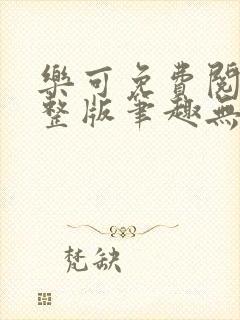 樂可免費閱
整版筆趣無
梵缺